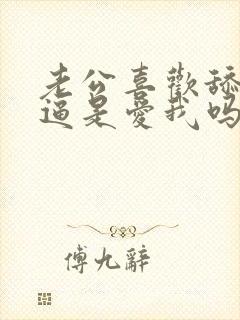 老公喜歡舔
逼是愛我吗
傅九辭